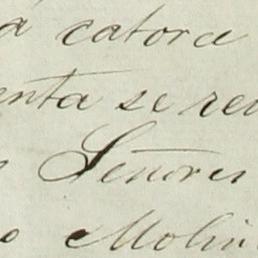 á catorce
enta se reu
Señores
o Molin